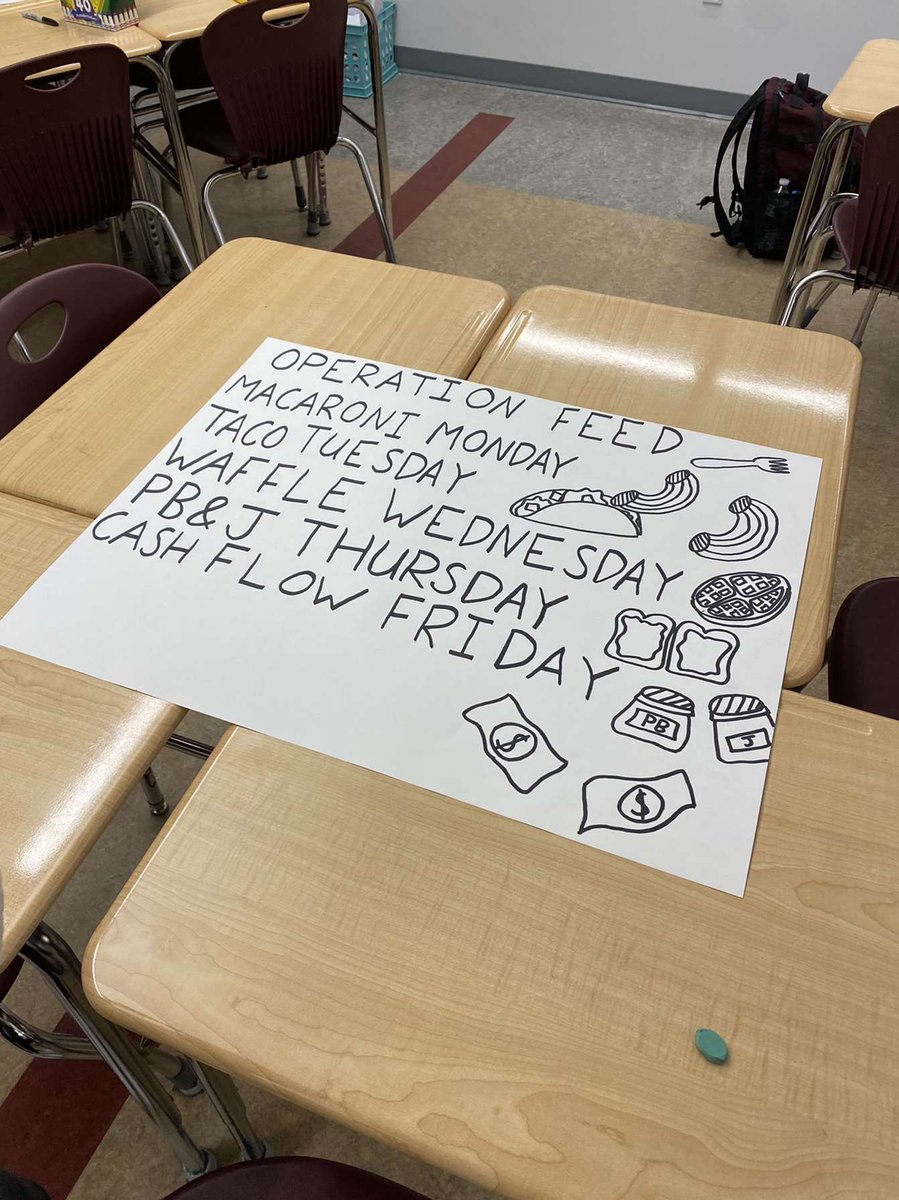 OPERATION FEED
MACARONI MONDAY
TACO TUESDAY
WAFFLE WEDNESDAY
PB&J THURSDAY
CASH FLOW FRIDAY
PB
J
$
$